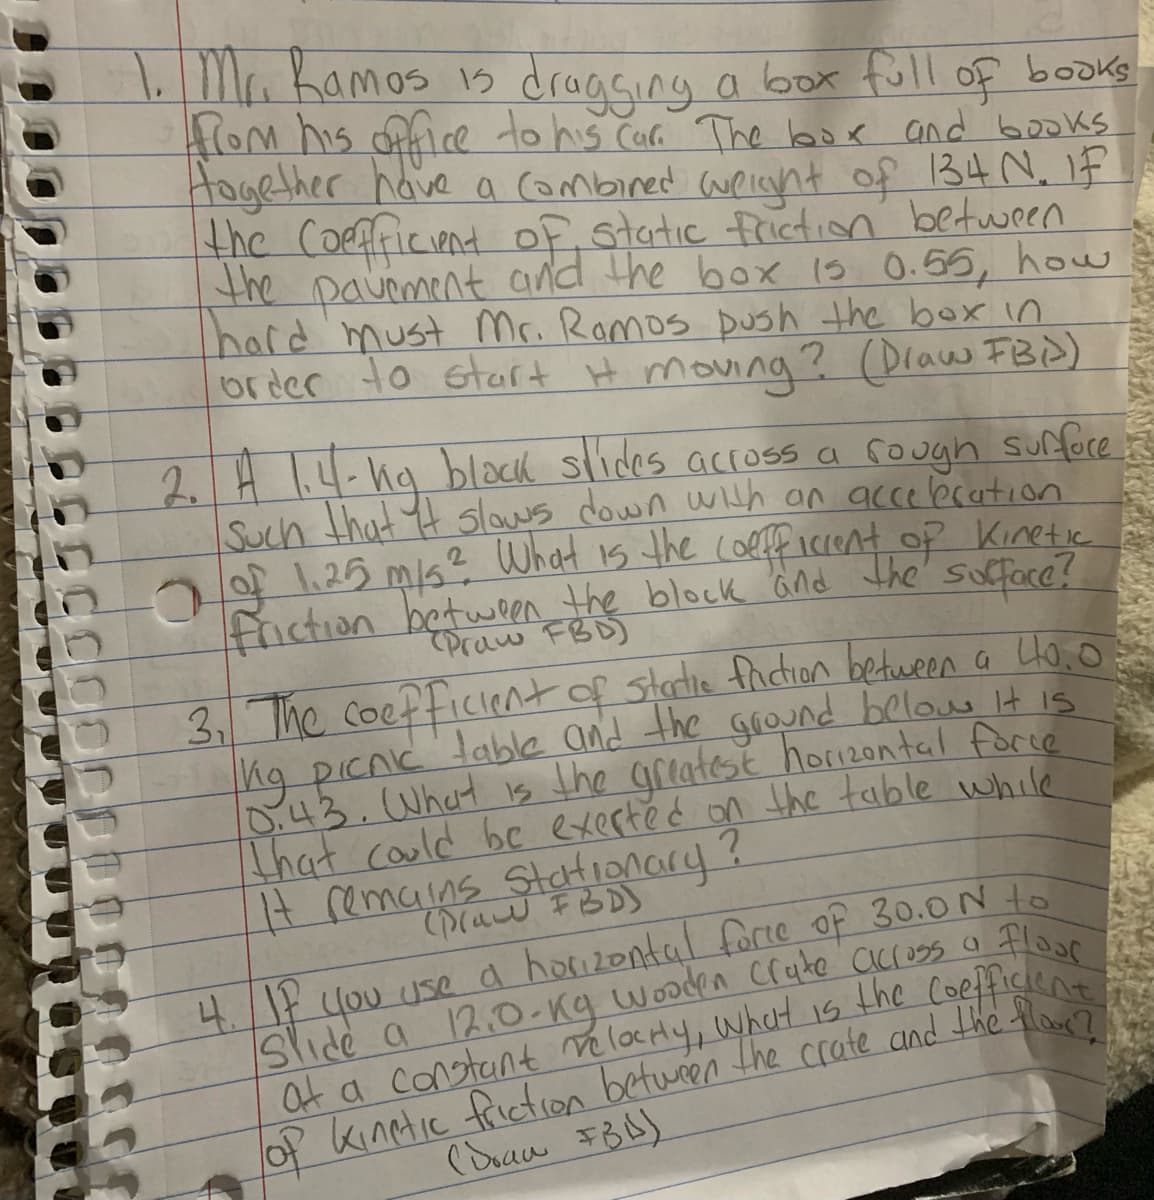 1. Mr. Ramos is dragging a box full of books
from his office to his car. The box and books
together have a combined weight of 134 N. If
the coefficient of static friction between
the pavement and the box is 0.55, how
hard must Mr. Ramos push the box in
order to start it moving? (Draw FBD)
2. A 1.4-kg block slides across a rough surface
such that it slows down with an acceleration
of 1.25 m/s². What is the coefficient of kinetic
friction between the block and the surface?
(Draw FBD)
3. The coefficient of static friction between a 40.0
kg picnic table and the ground below it is
0.43. What is the greatest horizontal force
that could be exerted on the table while
it remains stationary?
(Draw FBD)
4. If you use a horizontal force of 30.0 N to
slide a 12.0-kg wooden crate across a floor
at a constant velocity, what is the coefficient
of kinetic friction between the crate and the floor?
(Draw FBD)